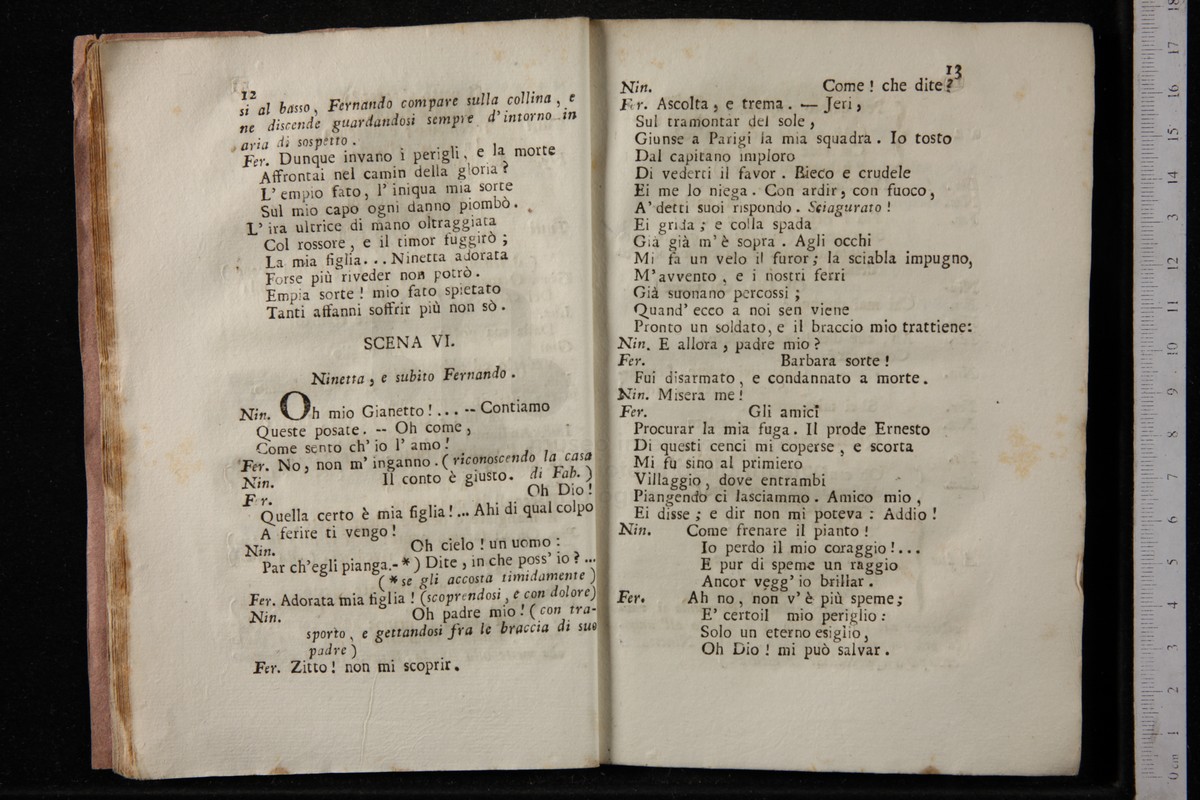 12
si al basso, Fernando compare sulla collina, e
ne discende guardandosi sempre d'intorno in
aria di sospetto.
Fer. Dunque invano i perigli, e la morte
Affrontai nel camin della gloria?
L'empio fato, l'iniqua mia sorte
Sul mio capo ogni danno piombò.
L'ira ultrice di mano oltraggiata
Col rossore, e il timor fuggirò;
La mia figlia... Ninetta adorata
Forse più riveder non potrò.
Empia sorte! mio fato spietato
Tanti affanni soffrir più non sò.
SCENA VI.
Ninetta, e subito Fernando.
Nin. Oh mio Gianetto!... -- Contiamo
Queste posate. -- Oh come,
Come sento ch'io l'amo!
Fer. No, non m'inganno. (riconoscendo la casa
Nin. Il conto è giusto. di Fab.)
F r. Oh Dio!
Quella certo è mia figlia!... Ahi di qual colpo
A ferire ti vengo!
Nin. Oh cielo! un uomo:
Par ch'egli pianga.-*) Dite, in che poss'io?...
(*se gli accosta timidamente)
Fer. Adorata mia figlia! (scoprendosi, e con dolore)
Nin. Oh padre mio! (con tra-
sporto, e gettandosi fra le braccia di suo
padre)
Fer. Zitto! non mi scoprir.
13
Nin. Come! che dite?
Fer. Ascolta, e trema. — Jeri,
Sul tramontar del sole,
Giunse a Parigi la mia squadra. Io tosto
Dal capitano imploro
Di vederti il favor. Bieco e crudele
Ei me lo niega. Con ardir, con fuoco,
A'detti suoi rispondo. Sciagurato!
Ei grida; e colla spada
Già già m'è sopra. Agli occhi
Mi fa un velo il furor; la sciabla impugno,
M'avvento, e i nostri ferri
Già suonano percossi;
Quand'ecco a noi sen viene
Pronto un soldato, e il braccio mio trattiene:
Nin. E allora, padre mio?
Fer. Barbara sorte!
Fui disarmato, e condannato a morte.
Nin. Misera me!
Fer. Gli amici
Procurar la mia fuga. Il prode Ernesto
Di questi cenci mi coperse, e scorta
Mi fu sino al primiero
Villaggio, dove entrambi
Piangendo ci lasciammo. Amico mio,
Ei disse; e dir non mi poteva: Addio!
Nin. Come frenare il pianto!
Io perdo il mio coraggio!...
E pur di speme un raggio
Ancor vegg'io brillar.
Fer. Ah no, non v'è più speme;
E' certoil mio periglio:
Solo un eterno esiglio,
Oh Dio! mi può salvar.
0 cm 1 2 3 4 5 6 7 8 9 10 11 12 13 14 15 16 17 18